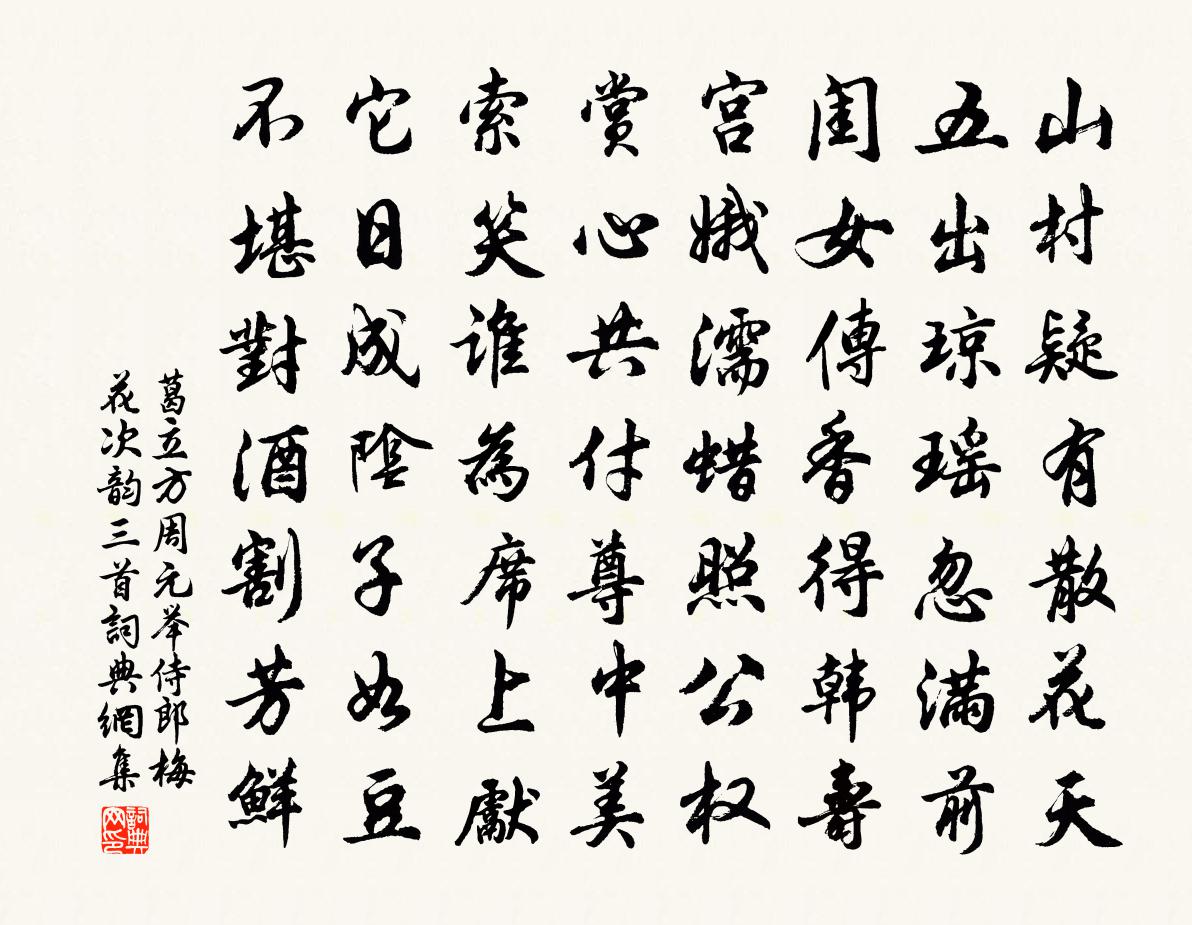 山村疑有散花天
五出琼瑶忽满前
闺女傳香得韩壽
宫娥濡蜡照公权
赏心共付尊中美
索笑谁為席上獻
它日成陰子如豆
不堪對酒割芳鮮
葛立方周元举侍郎梅
花次韵三首詞典網集
詞典
网印